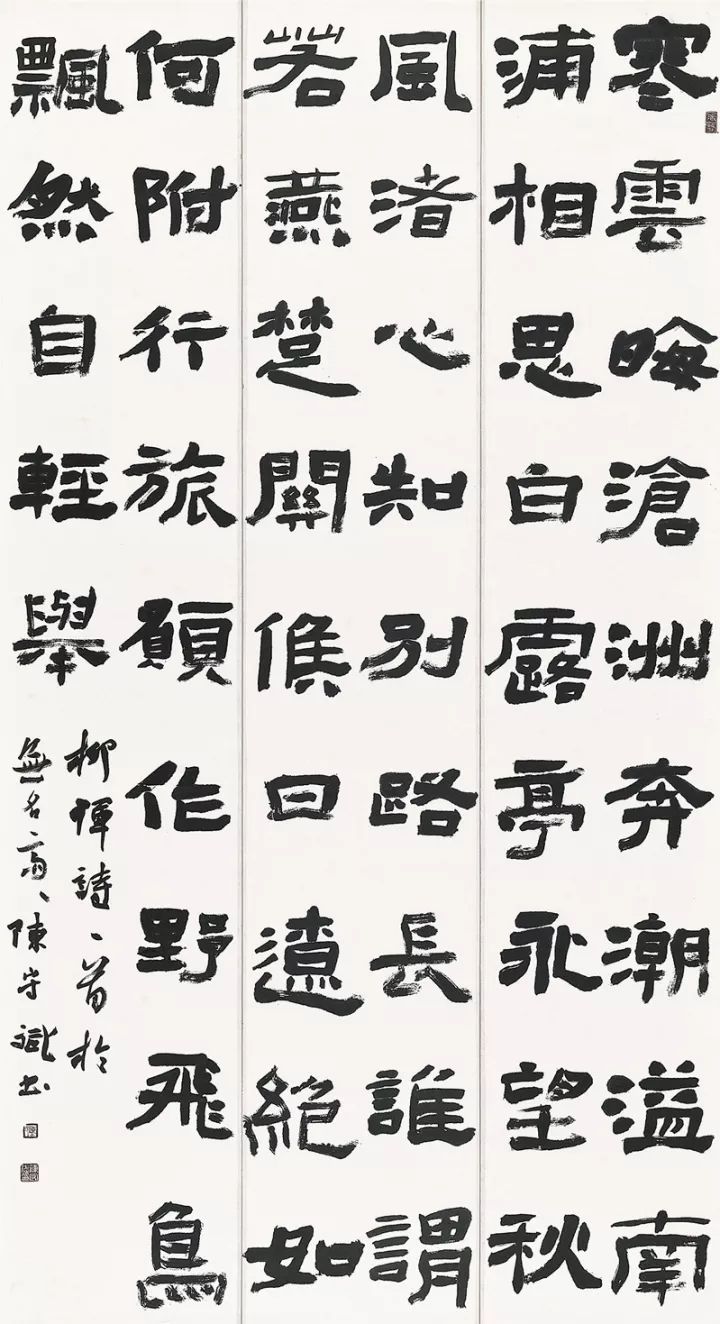 寒雲晦滄洲奔潮溢南
浦相思白露亭永望秋
風渚心知別路長誰謂
若燕楚關候日遼絕如
何附行旅願作野飛鳥
飄然自輕舉
柳惲詩一首於
無名齋陳守斌書